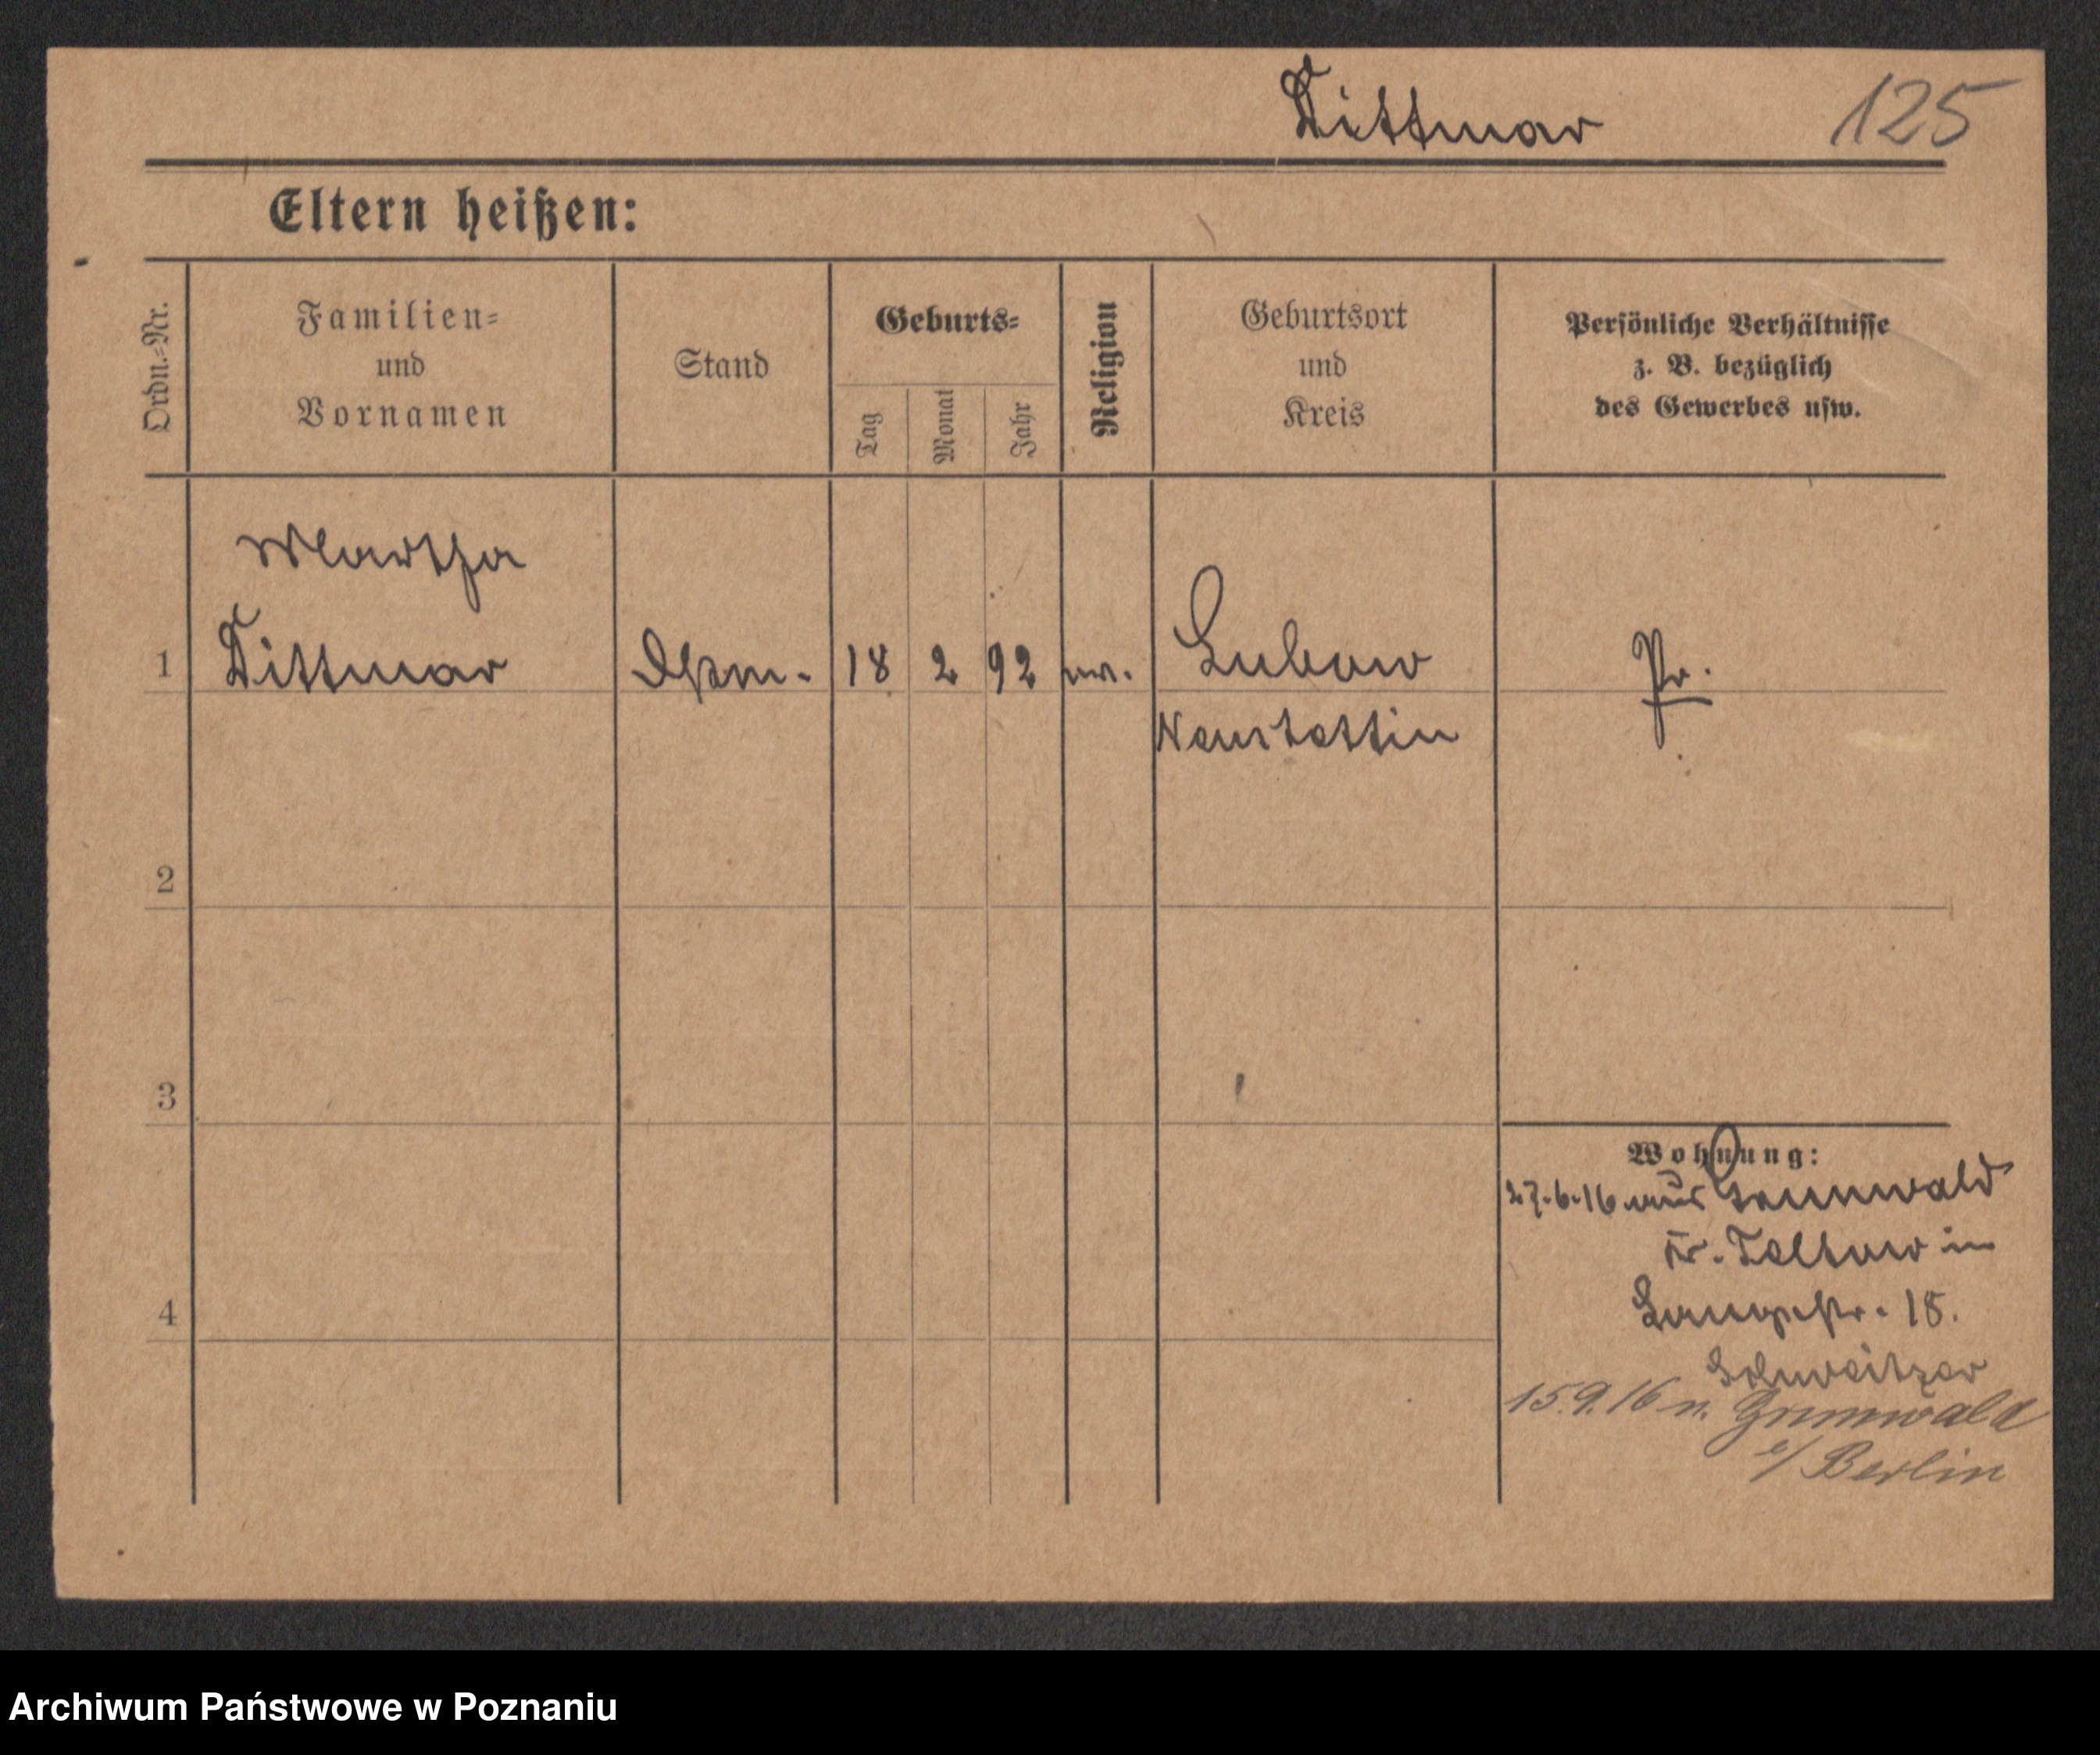 Dittmar 125
Eltern heißen:
Ordn.-Nr.
Familien-
und
Vornamen
Stand
Geburts-
Tag
Monat
Jahr
Religion
Geburtsort
und
Kreis
Persönliche Verhältnisse
z. B. bezüglich
des Gewerbes usw.
Martha
1 Dittmar 18 2 92 Lubow Pr.
Neustettin
2
3
Wohnung:
27.6.16 aus Grunwald
Kr. Teltow in
4
Langestr. 18.
Schweitzer
15.9.16 n. Grunwald
b/ Berlin
Archiwum Państwowe w Poznaniu